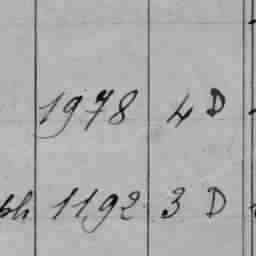 1978 4 D
ph 1192 3 D